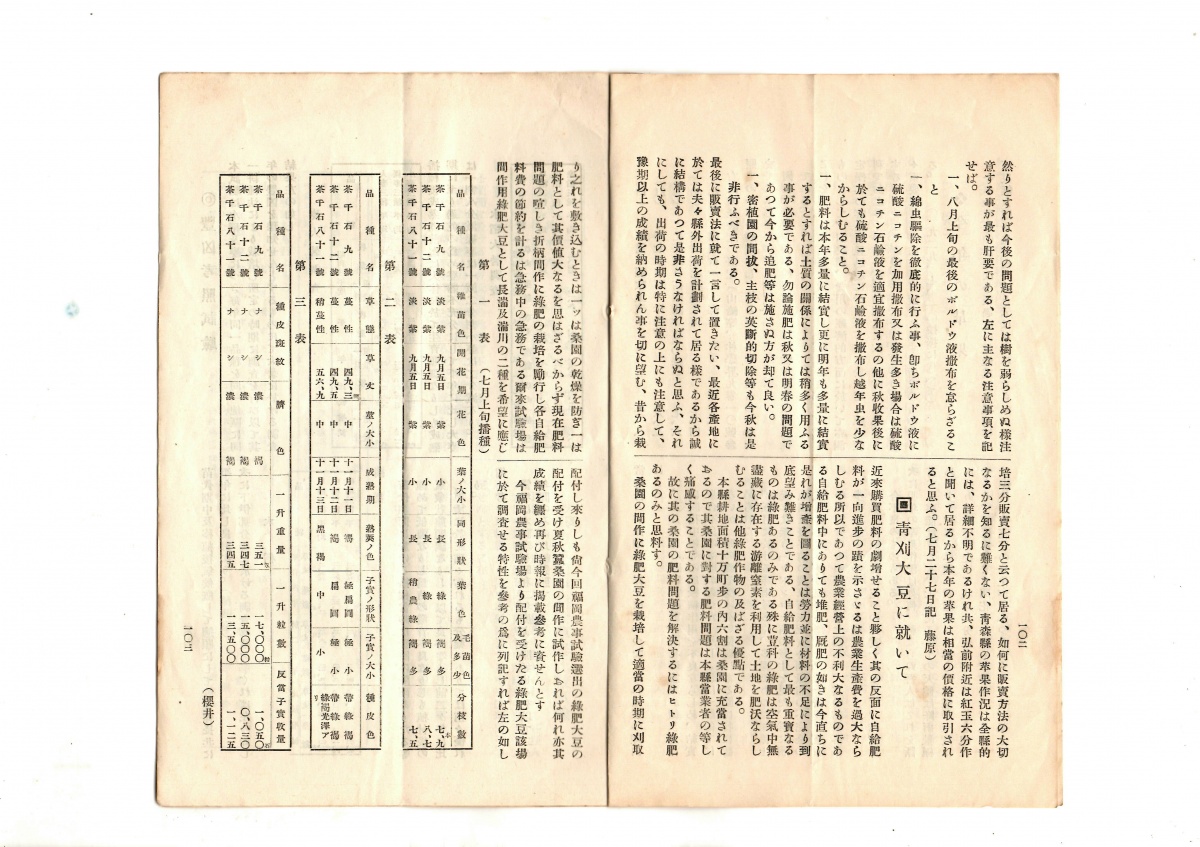 一〇二
然りとすれば今後の問題としては樹を弱らしめぬ樣注
意する事が最も肝要である、左に主なる注意事項を記
せば。
一、八月上旬の最後のボルドウ液撒布を怠らざるこ
と
一、綿虫驅除を徹底的に行ふ事、卽ちボルドウ液に
硫酸ニコチンを加用撒布又は發生多き場合は硫酸
ニコチン石鹼液を適宜撒布するの他に秋收果後に
於ても硫酸ニコチン石鹼液を撒布し越年虫を少な
からしむること。
一、肥料は本年多量に結實し更に明年も多量に結實
するとすれば土質の關係によりては稍多く用ふる
事が必要である、勿論施肥は秋又は明春の問題で
あつて今から追肥等は施さぬ方が却て良い。
一、密植園の間拔、主枝の英斷的切除等も今秋は是
非行ふべきである。
最後に販賣法に就て一言して置きたい、最近各產地に
於ては夫々縣外出荷を計劃されて居る樣であるから誠
に結構であつて是非さうなければならぬと思ふ、それ
にしても、出荷の時期は特に注意の上にも注意して、
豫期以上の成績を納められん事を切に望む、昔から栽
培三分販賣七分と云つて居る、如何に販賣方法の大切
なるかを知るに難くない、靑森縣の苹果作況は全縣的
には、詳細不明であるけれ共、弘前附近は紅玉六分作
と聞いて居るから本年の苹果は相當の價格に取引され
ると思ふ。(七月二十七日記　藤原)
靑刈大豆に就いて
近來購買肥料の劇增せること夥しく其の反面に自給肥
料が一向進步の蹟を示さゞるは農業生產費を過大なら
しむる所以であつて農業經營上の不利大なるものであ
る自給肥料中にありても堆肥、厩肥の如きは今直ちに
是れが增產を圖ることは勞力並に材料の不足により到
底望み難きことである、自給肥料として最も重寶なる
ものは綠肥あるのみである殊に荳科の綠肥は空氣中無
盡藏に存在する游離窒素を利用して土地を肥沃ならし
むることは他綠肥作物の及ばざる優點である。
本縣耕地面積十万町步の內六割は桑園に充當されて
おるので其桑園に對する肥料問題は本縣當業者の等し
く痛感することである。
故に其の桑園の肥料問題を解決するにはヒトリ綠肥
あるのみと思料す。
桑園の間作に綠肥大豆を栽培して適當の時期に刈取
り之れを敷き込むときは一ッは桑園の乾燥を防ぎ一は
肥料として其價値大なるを思はざるべからず現在肥料
問題の喧しき折柄間作に綠肥の栽培を勵行し各自給肥
料費の節約を計るは急務中の急務である爾來試驗場は
間作用綠肥大豆として長湍及湍川の二種を希望に應じ
配付し來りしも尙今回福岡農事試驗場選出の綠肥大豆の
配付を受け夏秋蠶桑園の間作に試作しおれば何れ亦其
成績を纒め再び時報に揭載參考に資せんとす
今福岡農事試驗場より配付を受けたる綠肥大豆該場
に於て調査せる特性を參考の爲に列記すれば左の如し
第一表　(七月上旬播種)
品種名　稚苗色　開花期　花色　葉ノ大小　同形狀　葉色　毛茸色及多少　分枝數
茶千石九號　淡紫　九月五日　紫　小　長　綠　褐多　七、九本
茶千石十二號　淡紫　九月五日　紫　小　長　綠　褐多　八、七
茶千石八十一號　淡紫　九月五日　紫　小　長　稍農綠　褐多　七、五
第二表
品種名　草態　草丈　莖ノ大小　成熟期　熟莢ノ色　子實ノ形狀　子實ノ大小　種皮色
茶千石九號　蔓性　四九、三　中　十一月十一日　褐　楕扁圓　極小　帶綠褐
茶千石十二號　蔓性　四九、五　中　十一月十二日　褐　扁圓　極小　帶綠褐
茶千石八十一號　稍蔓性　五六、九　中　十一月十三日　黑褐　中　小　綠褐光澤アリ
第三表
品種名　種皮斑紋　臍色　一升重量　一升粒數　反當子實收量
茶千石九號　ナシ　濃褐　三五一匁　一七、〇〇〇粒　一、〇五〇石
茶千石十二號　ナシ　濃褐　三四七　一五、〇〇〇　〇、八三〇
茶千石八十一號　ナシ　濃褐　三四五　一三、五〇〇　一、一二五
(櫻井)
一〇三